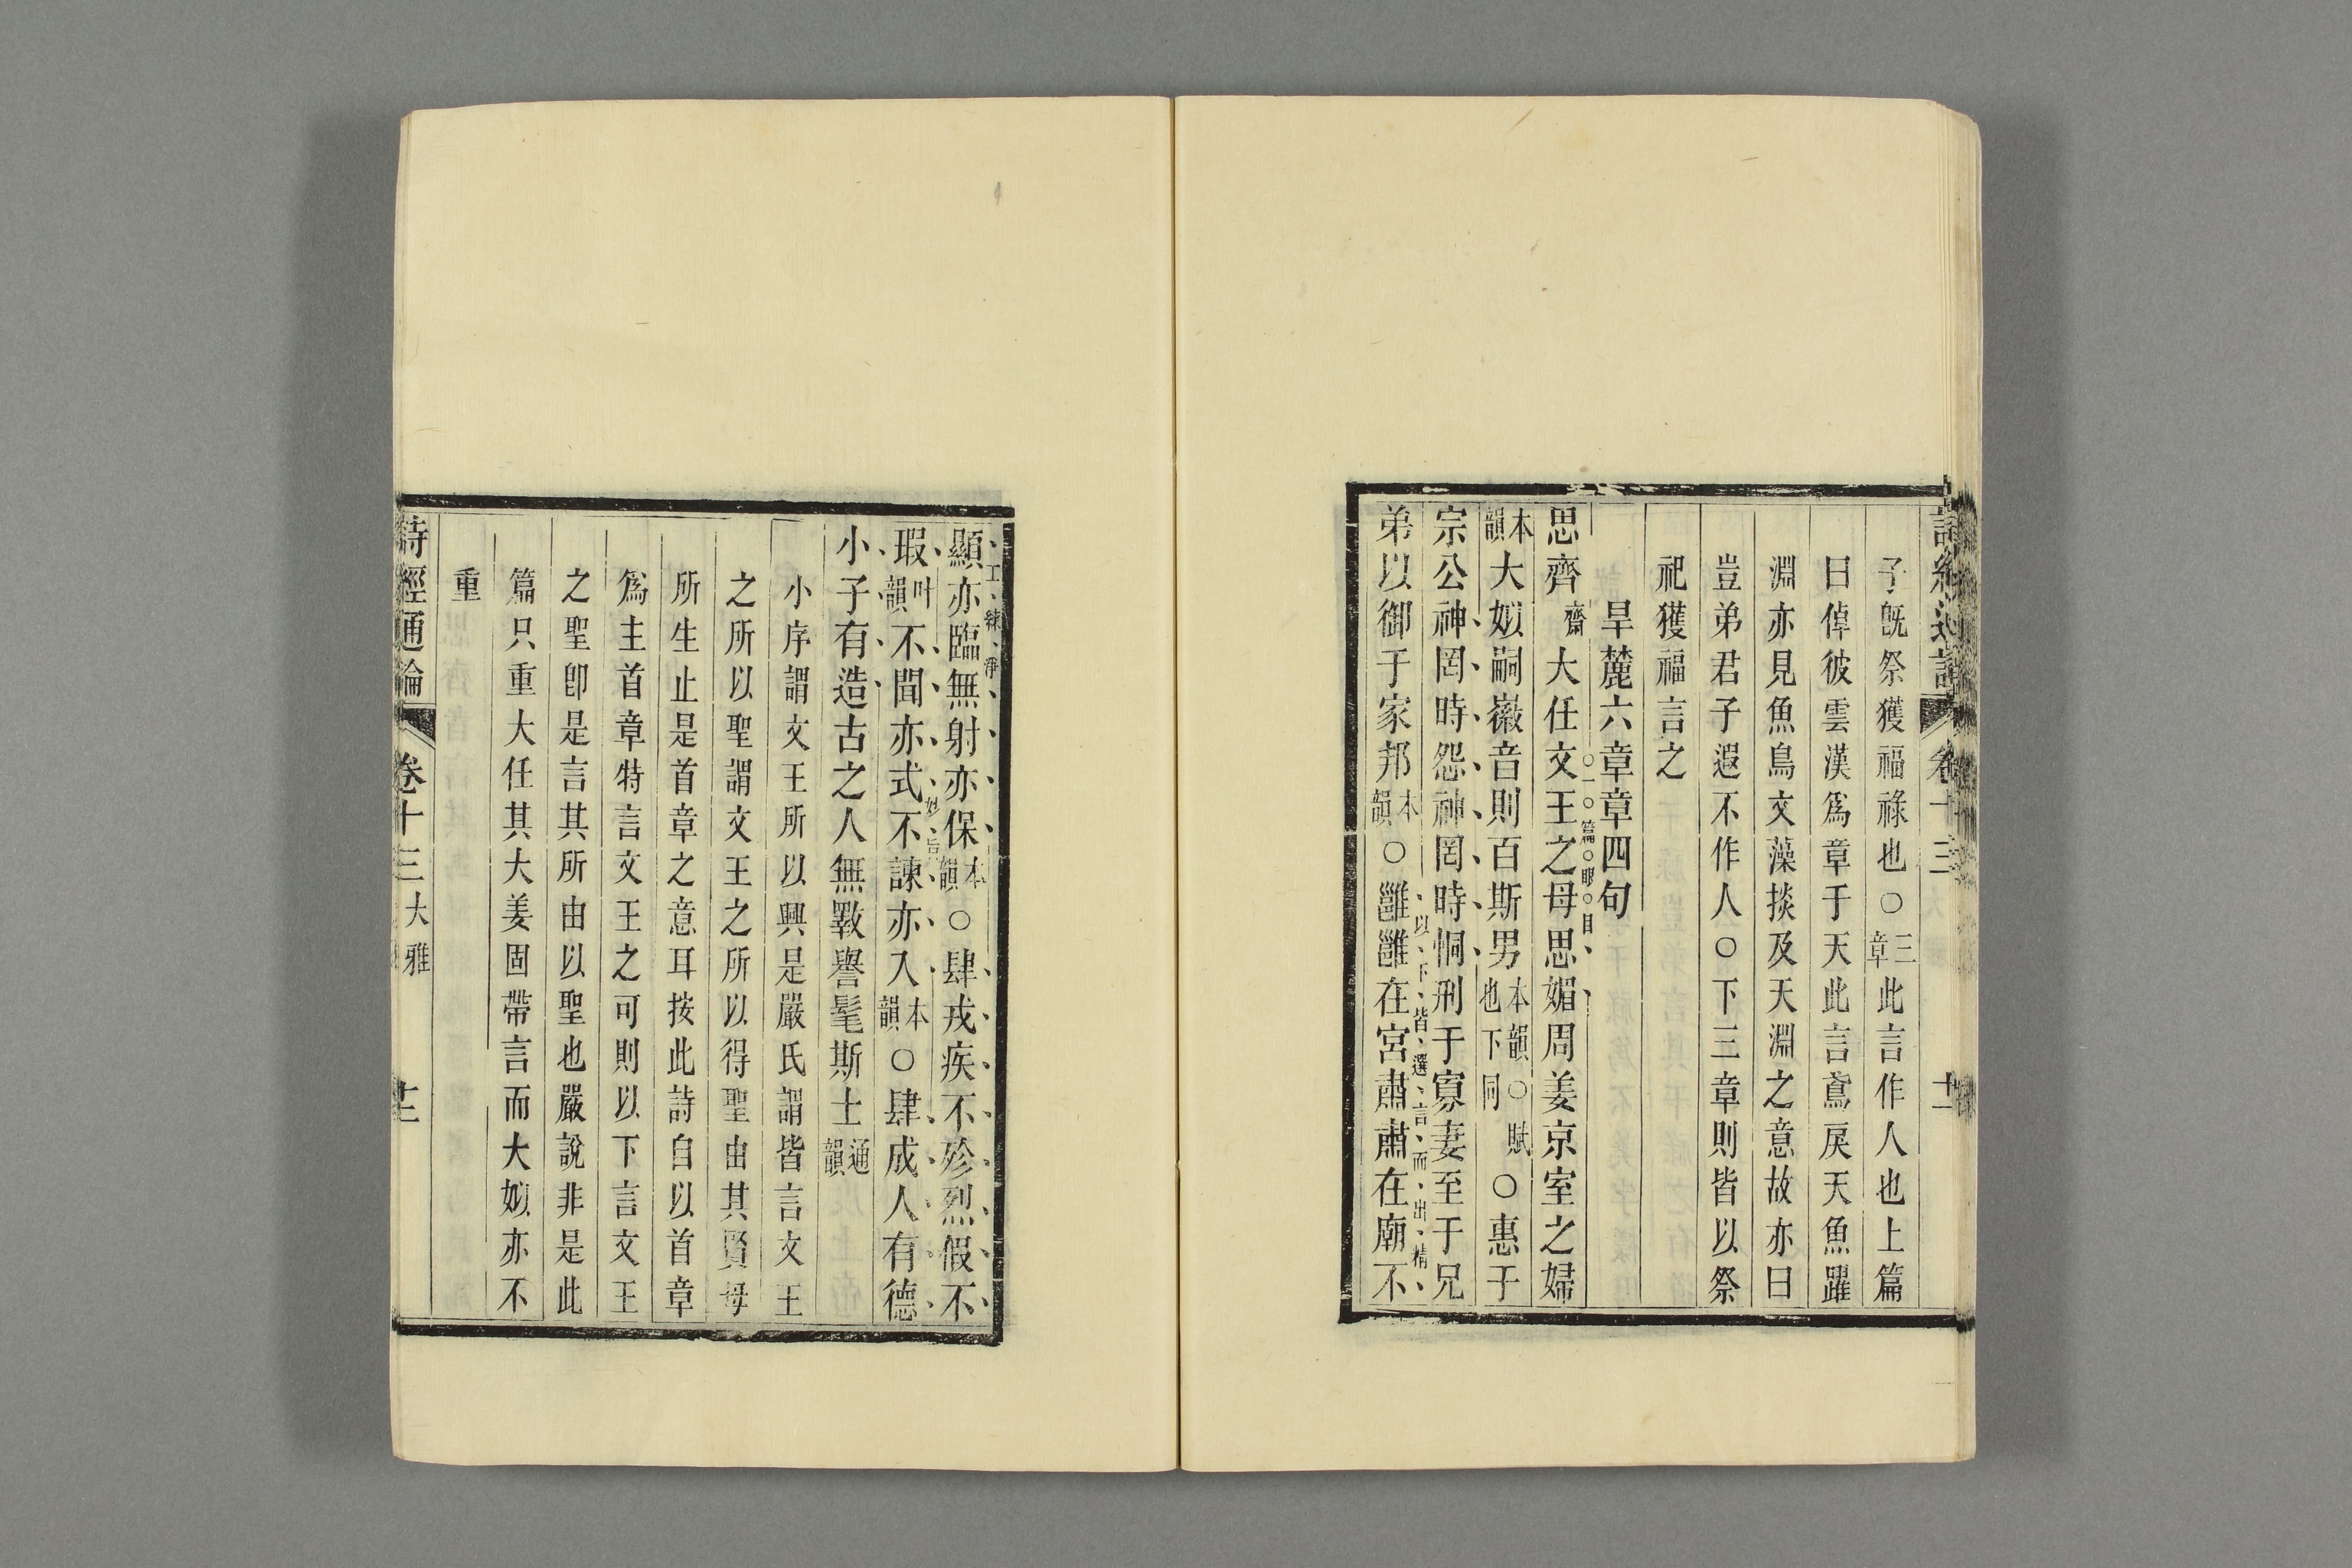 詩經通論 卷十三 十一
子旣祭獲福祿也○三章此言作人也上篇
曰倬彼雲漢爲章于天此言鳶戾天魚躍
淵亦見魚鳥文藻掞及天淵之意故亦曰
豈弟君子遐不作人○下三章則皆以祭
祀獲福言之
旱麓六章章四句
○一○篇○眼○目
思齊齋大任文王之母思媚周姜京室之婦
本韻大姒嗣徽音則百斯男本韻○賦也下同○惠于
宗公神罔時怨神罔時恫刑于寡妻至于兄
以下皆選言而出精
弟以御于家邦本韻○雝雝在宮肅肅在廟不
工練淨
顯亦臨無射亦保本韻○肆戎疾不殄烈假不
妙旨
瑕叶韻不聞亦式不諫亦入本韻○肆成人有德
小子有造古之人無斁譽髦斯士通韻
小序謂文王所以興是嚴氏謂皆言文王
之所以聖謂文王之所以得聖由其賢母
所生止是首章之意耳按此詩自以首章
爲主首章特言文王之可則以下言文王
之聖卽是言其所由以聖也嚴說非是此
篇只重大任其大姜固帶言而大姒亦不
重
詩經通論 卷十三 大雅 十二